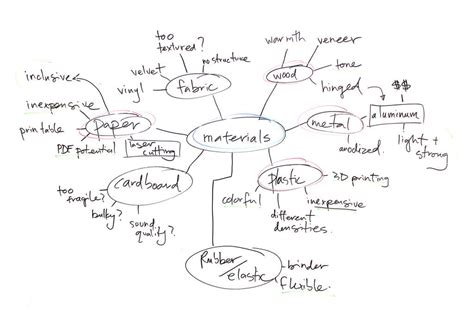 too
textured?
no structure
velvet
vinyl
fabric
warmth
veneer
wood
tone
hinged
$$
aluminum
light +
strong
metal
anodized.
inclusive
inexpensive
printable
paper
PDF potential
laser
cutting
materials
cardboard
too
fragile?
bulky?
sound
quality?
plastic
3D printing
colorful
inexpensive
different
densities.
Rubber/
elastic
binder
flexible.